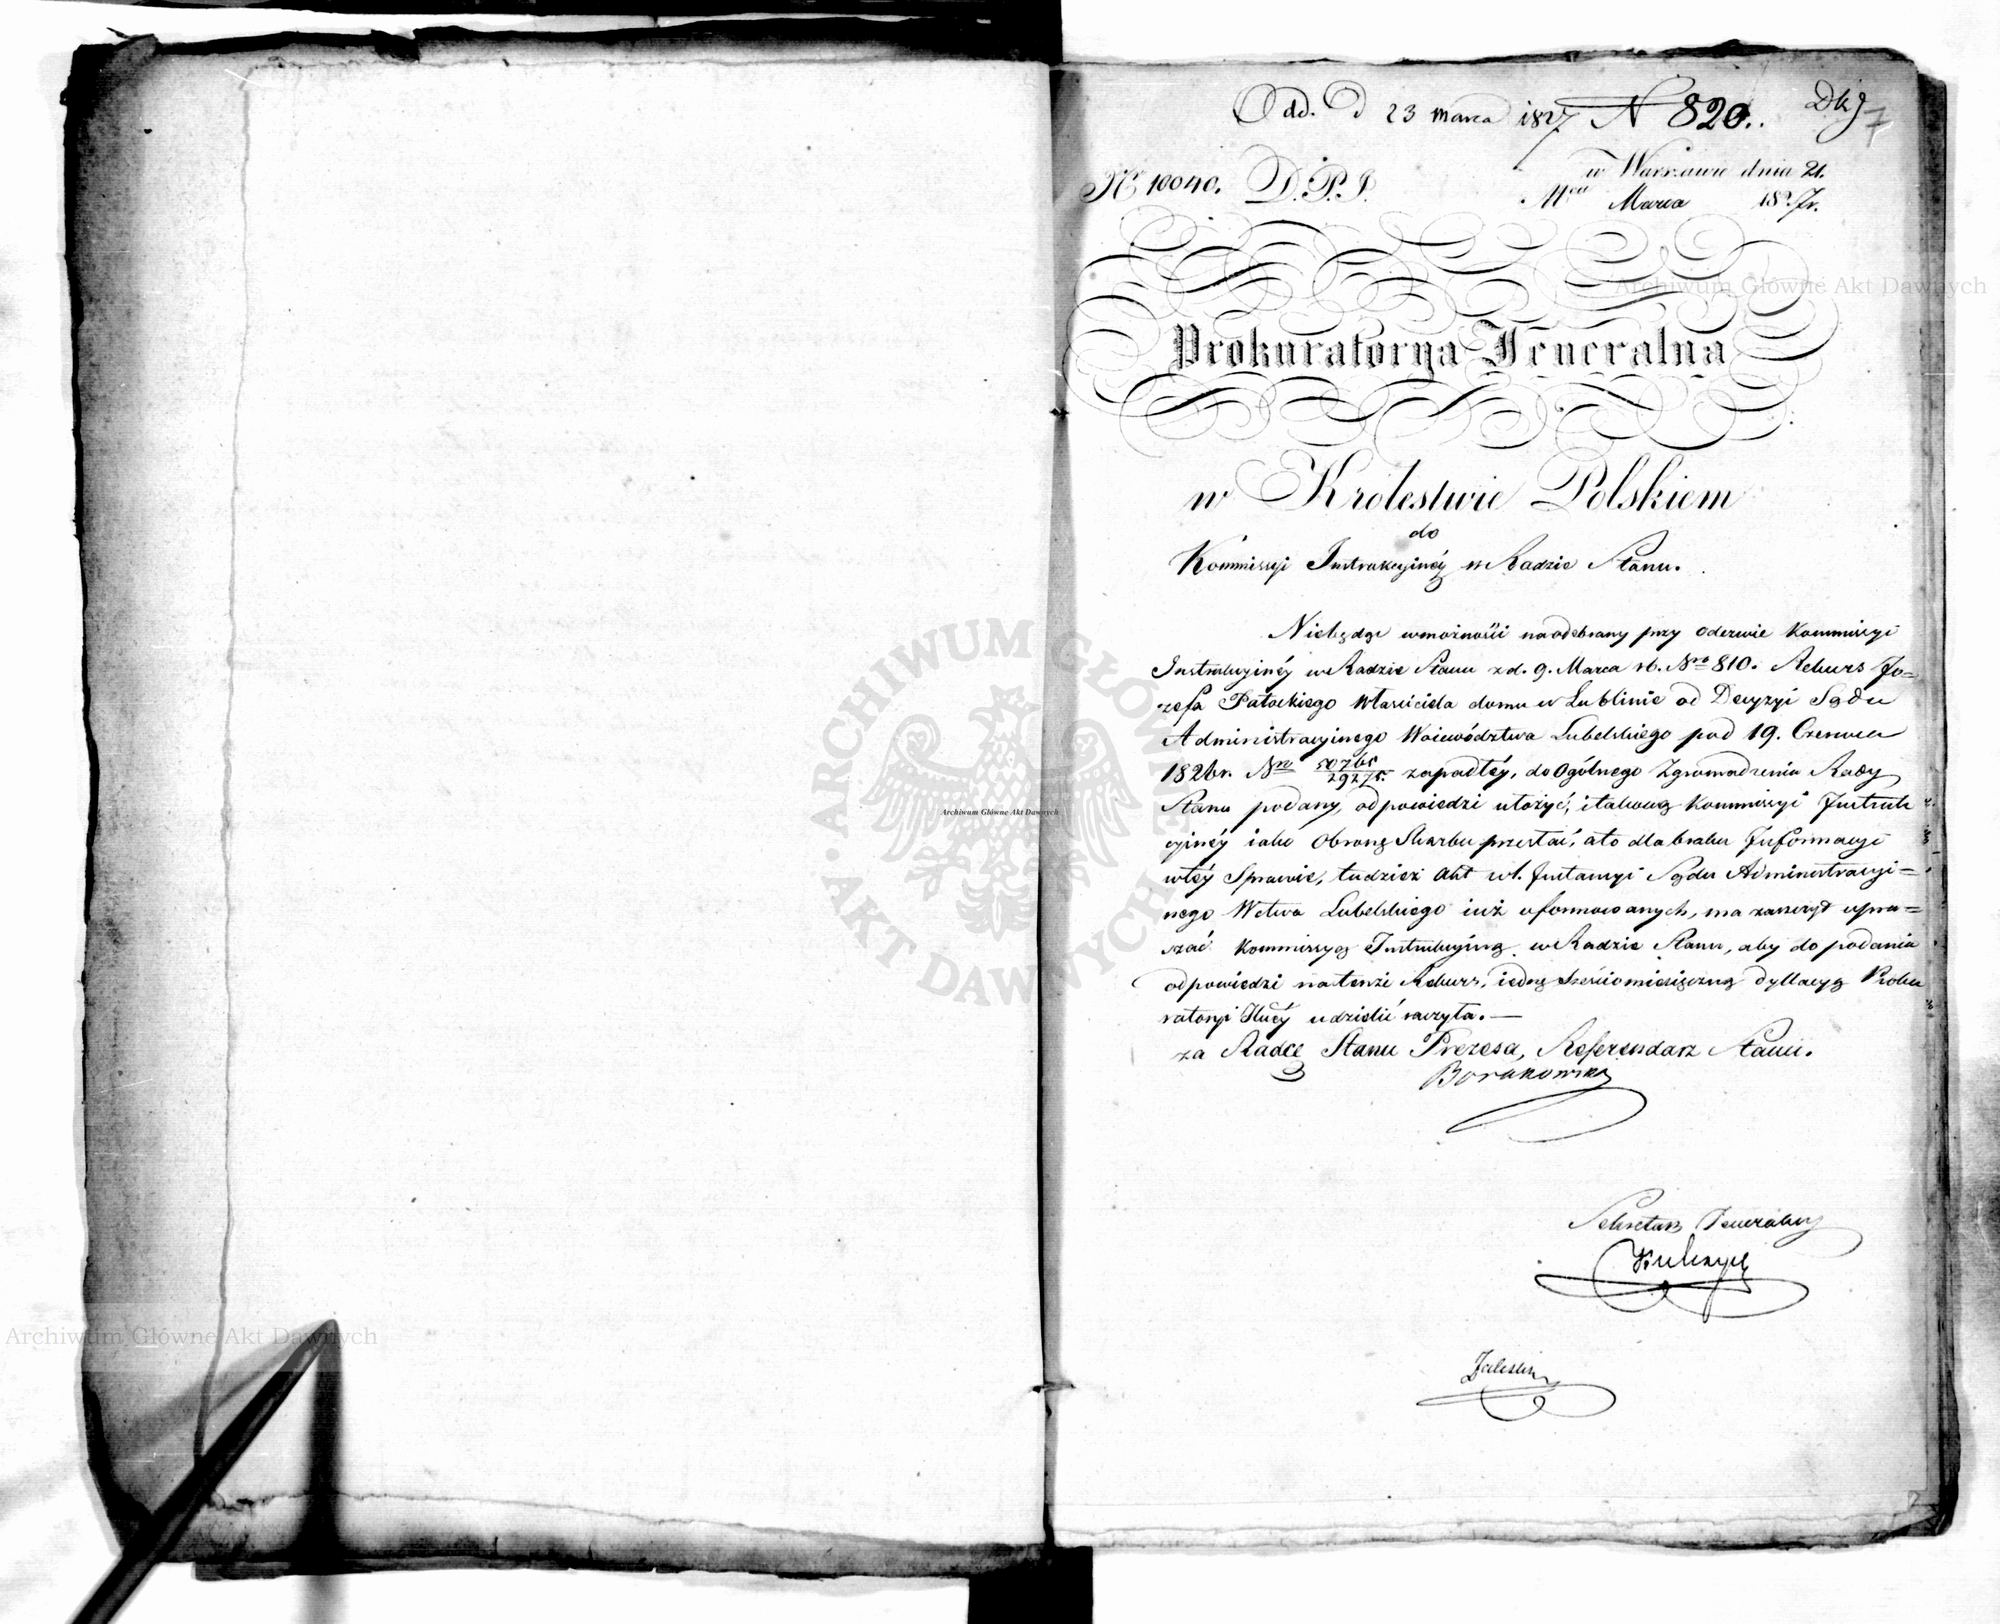 Odd. d 23 marca 1827 N 820.. Dkg 7
Nº 10040. D.P.J. w Warszawie dnia 21.
Mca Marca 1827r.
Prokuratorya Jeneralna
w Królestwie Polskiem
do
Kommissyi Instrukcyinéy w Radzie Stanu.
Niebędąc wmożności na odebrany przy odezwie Kommissyi
Instrukcyinéy w Radzie Stanu z d. 9. Marca rb. Nro 810. Rekurs Jo=
zefa Patockiego Właściciela domu w Lublinie od Decyzyi Sądu
Administracyinego Woiewództwa Lubelskiego pod 19. Czerwca
1826r. Nro zapadłéy, do Ogólnego Zgromadzenia Rady
Stanu podany, odpowiedzi ułożyć, i takową Kommissyi Instruk
cyinéy iako Obronę Skarbu przesłać, a to dla braku Informacyi
wtéy Sprawie, tudzież Akt w I. Instancyi Sądu Administracyi=
nego Wctwa Lubelskiego iuż uformowanych, ma zaszczyt upra=
szać Kommissyą Instrukcyiną w Radzie Stanu, aby do podania
odpowiedzi na tenże Rekurs, iedną sześciomiesięczną dyllacyą Proku
ratoryi udzielić raczyła.—
za Radcę Stanu Prezesa, Referendarz Stanu.
Borakowski
Sekretarz Jeneralny
Kulczyck
Zaleski
Archiwum Główne Akt Dawnych
Archiwum Główne Akt Dawnych
Archiwum Główne Akt Dawnych
ARCHIWUM GŁÓWNE AKT DAWNYCH